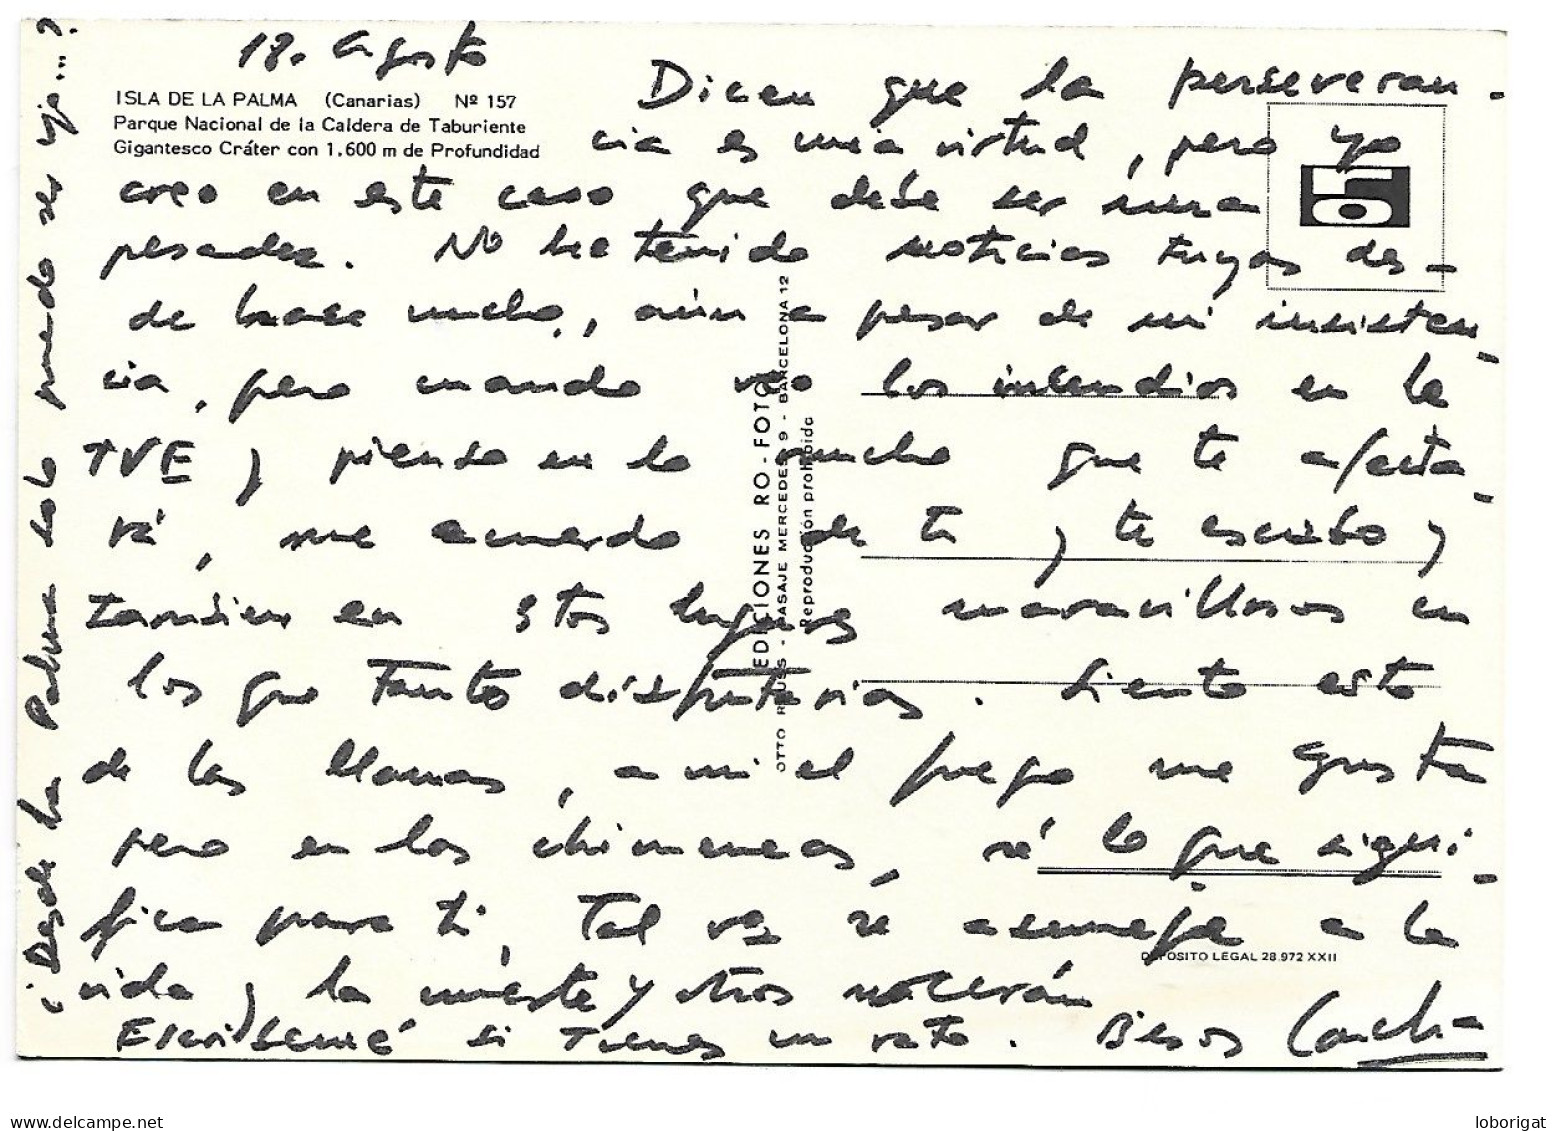 18. Agosto
ISLA DE LA PALMA (Canarias) Nº 157
Parque Nacional de la Caldera de Taburiente
Gigantesco Cráter con 1.600 m de Profundidad
Dicen que la perseveran-
cia es una virtud, pero yo
creo en este caso que debe ser una
pesadez. No he tenido noticias tuyas des-
de hace mucho, aún a pesar de mi insisten-
cia, pero cuando veo los incendios en la
TVE y pienso en lo mucho que te afecta-
rá, me acuerdo de ti y te escribo y
también en estos lugares maravillosos en
los que tanto disfrutarias. Siento esto
de las llamas, a mi el fuego me gusta
pero en las chimeneas, sé lo que signi-
fica para ti, tal vez se asemeje a la
vida y la muerte y otros nacerán
Escribeme si tienes un rato. Besos Concha
¡Desde La Palma solo puede ser yo...?
EDICIONES RO-FOTO
OTTO - PASAJE MERCEDES 9 - BARCELONA 12
Reproducción prohibida
DEPOSITO LEGAL 28.972 XXII
loborigat